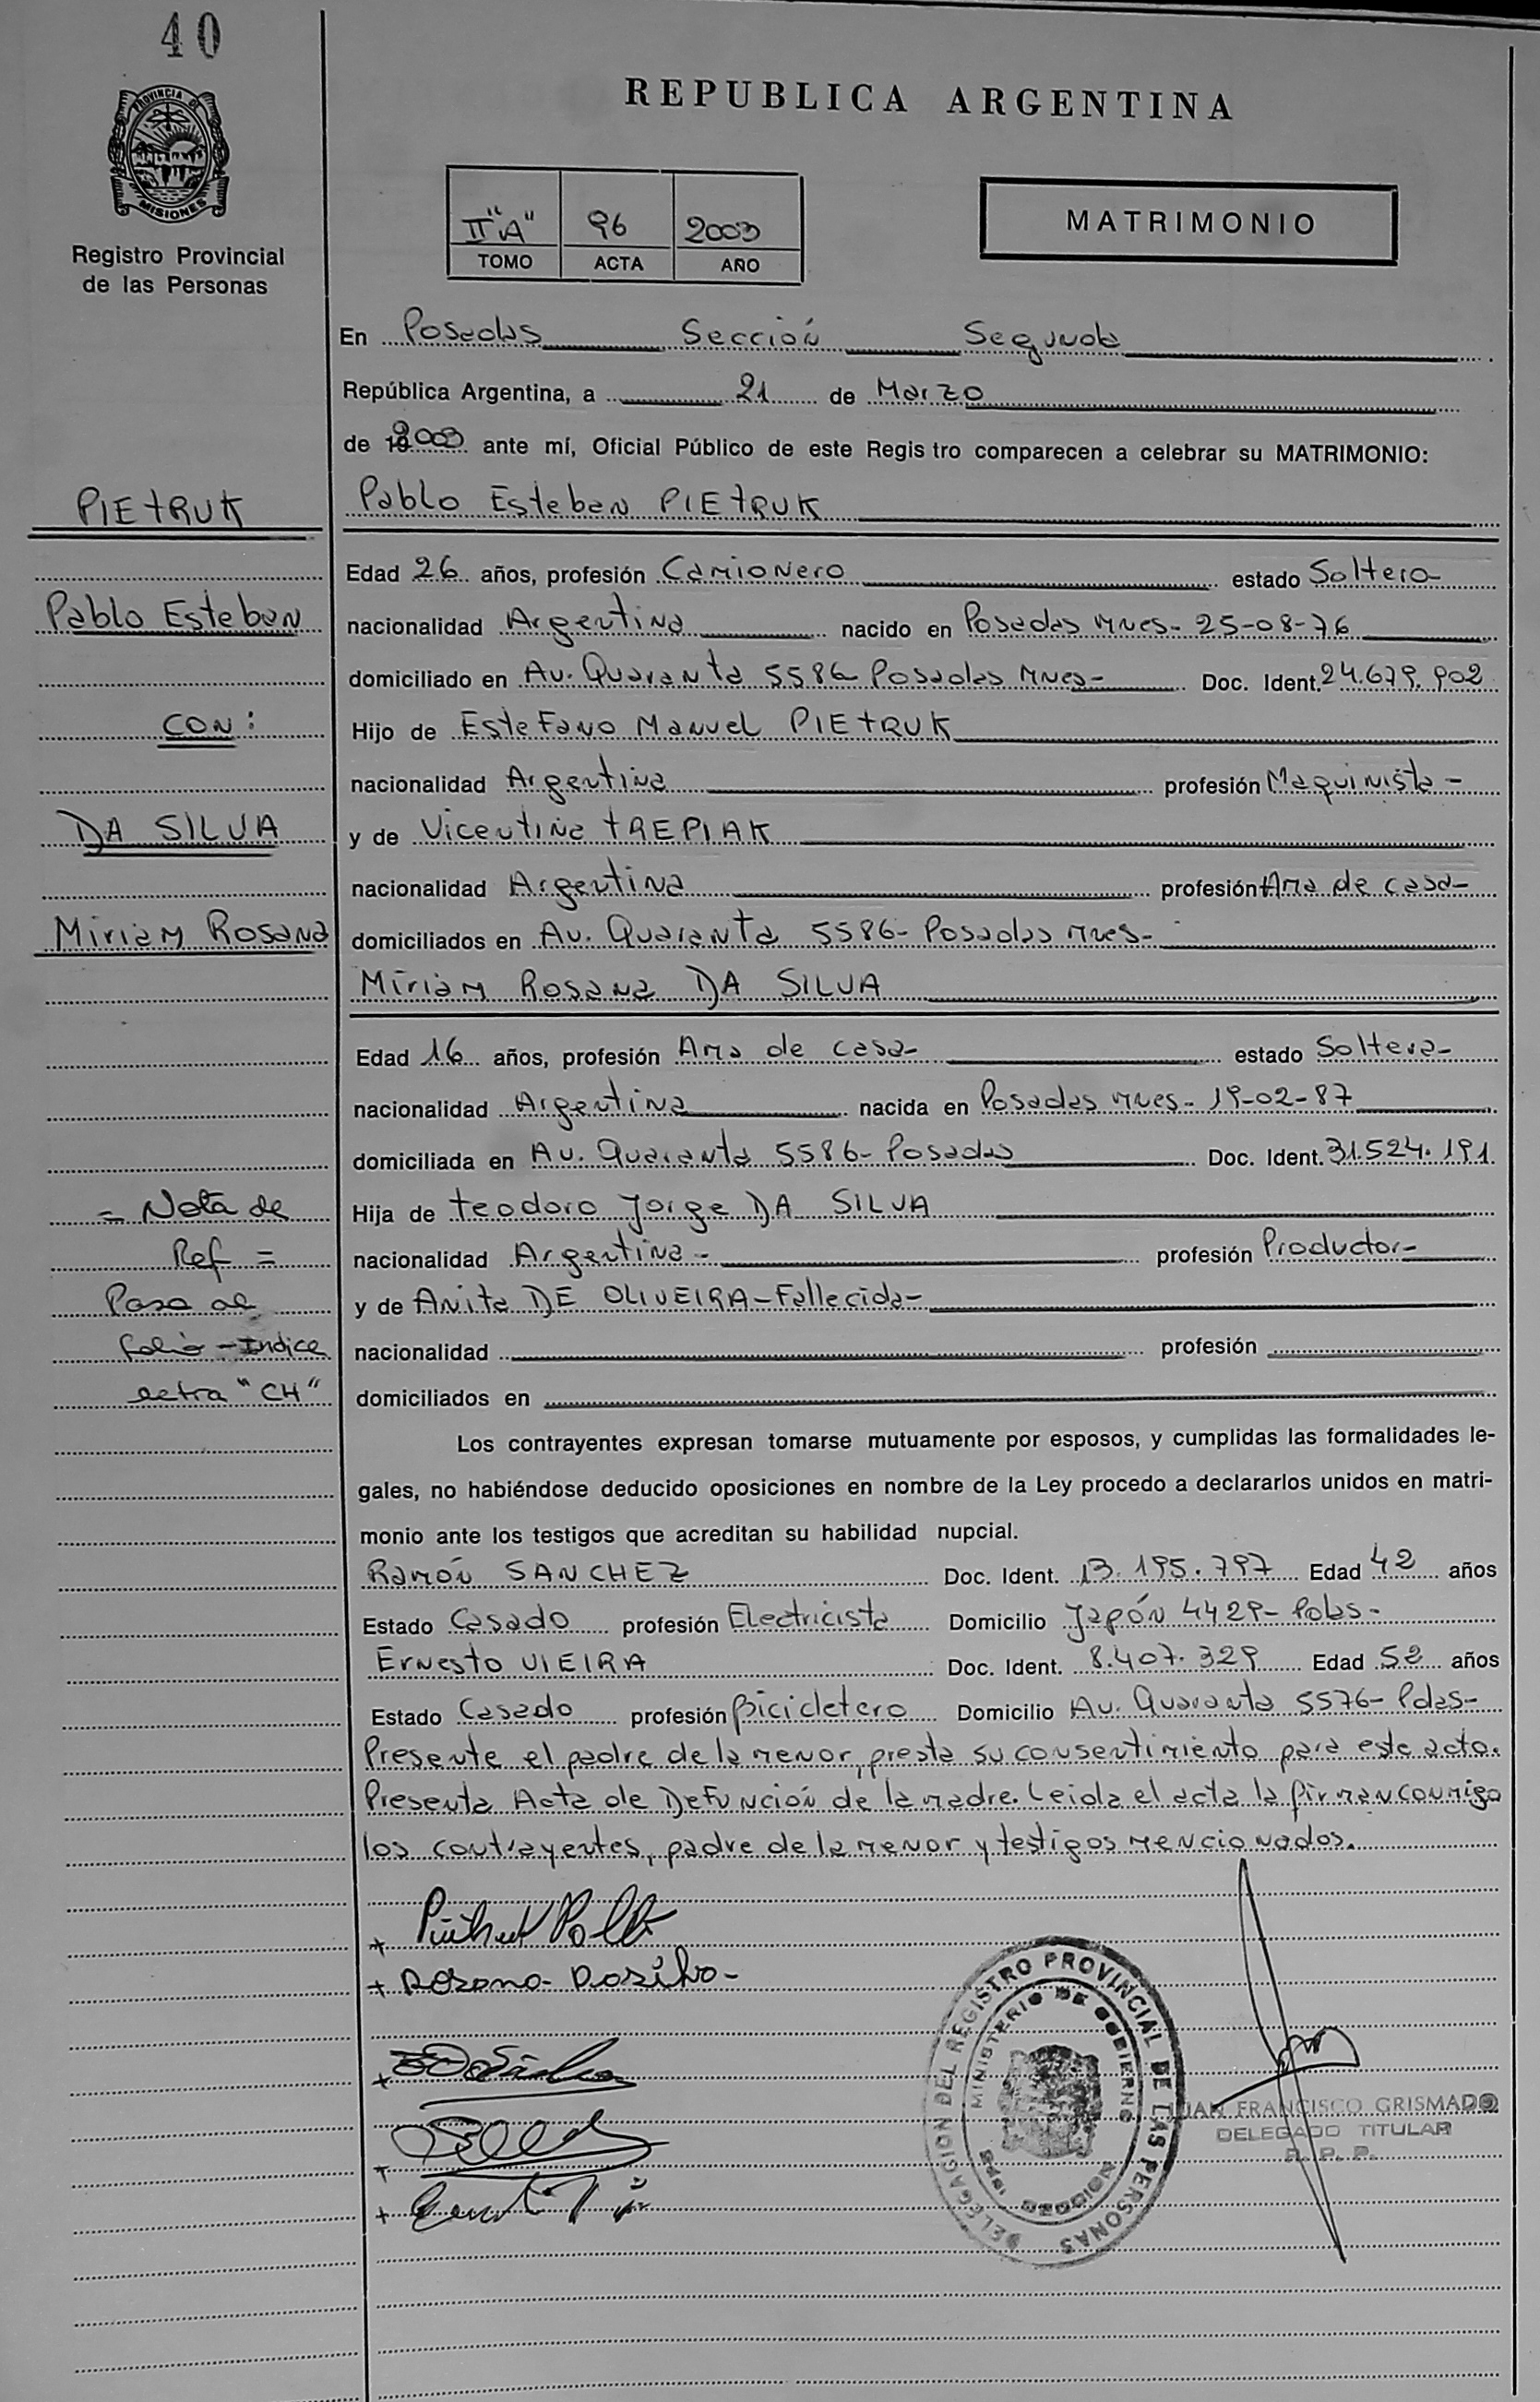 40
PROVINCIA DE
MISIONES
Registro Provincial
de las Personas
REPUBLICA ARGENTINA
II "A" 96 2003
TOMO ACTA AÑO
MATRIMONIO
En Posadas Sección Segunda
República Argentina, a 21 de Marzo
de 2003 ante mí, Oficial Público de este Regis tro comparecen a celebrar su MATRIMONIO:
PIETRUK
Pablo Esteban PIETRUK
Edad 26 años, profesión Camionero estado Soltero-
Pablo Esteban
nacionalidad Argentina nacido en Posadas Mnes- 25-08-76
domiciliado en Av. Quaranta 5586- Posadas Mnes- Doc. Ident. 24.679.902
CON:
Hijo de Estefano Manuel PIETRUK
nacionalidad Argentina profesión Maquinista-
DA SILVA
y de Vicentina TREPIAK
nacionalidad Argentina profesión Ama de casa-
Miriam Rosana
domiciliados en Av. Quaranta 5586- Posadas Mnes-
Miriam Rosana DA SILVA
Edad 16 años, profesión Ama de casa- estado Soltera-
nacionalidad Argentina nacida en Posadas Mnes- 19-02-87
domiciliada en Av. Quaranta 5586- Posadas Doc. Ident. 31.524.191
= Nota de
Hija de Teodoro Jorge DA SILVA
Ref =
nacionalidad Argentina- profesión Productor-
Pasa al
y de Anita DE OLIVEIRA-Fallecida-
folio - Indice
nacionalidad profesión
letra "CH"
domiciliados en
Los contrayentes expresan tomarse mutuamente por esposos, y cumplidas las formalidades le-
gales, no habiéndose deducido oposiciones en nombre de la Ley procedo a declararlos unidos en matri-
monio ante los testigos que acreditan su habilidad nupcial.
Ramón SANCHEZ Doc. Ident. 13.195.797 Edad 42 años
Estado Casado profesión Electricista Domicilio Japón 4429- Pdas-
Ernesto VIEIRA Doc. Ident. 8.407.329 Edad 52 años
Estado Casado profesión Bicicletero Domicilio Av. Quaranta 5576- Pdas-
Presente el padre de la menor, presta su consentimiento para este acto.
Presenta Acta de Defunción de la madre. Leida el acta la firman conmigo
los contrayentes, padre de la menor y testigos mencionados.
+ Pietruk Pablo
+ Rosana- Dasilva-
DELEGACION DEL REGISTRO PROVINCIAL DE LAS PERSONAS
MINISTERIO DE GOBIERNO
JUAN FRANCISCO GRISMADO
DELEGADO TITULAR
R. P. P.